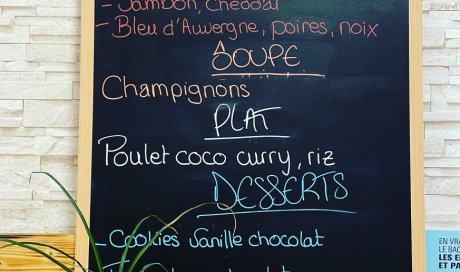 - Jambon, cheddar
- Bleu d'Auvergne, poires, noix
SOUPE
Champignons
PLAT
Poulet coco curry, riz
DESSERTS
- Cookies vanille chocolat
EN VRA
LE BAC
LES E
ET PA